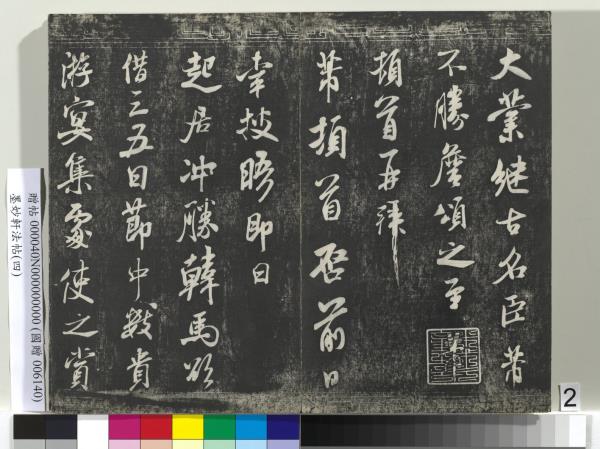 大業継古名臣芾
不勝詹頌之至
頓首再拜
芾頓首啓前日
幸披晤即日
起居沖勝韓馬欲
借三五日節中數貴
游冥集處使之賞
贈帖 000040N000000000 (國贈 006140)
墨妙軒法帖(四)
2